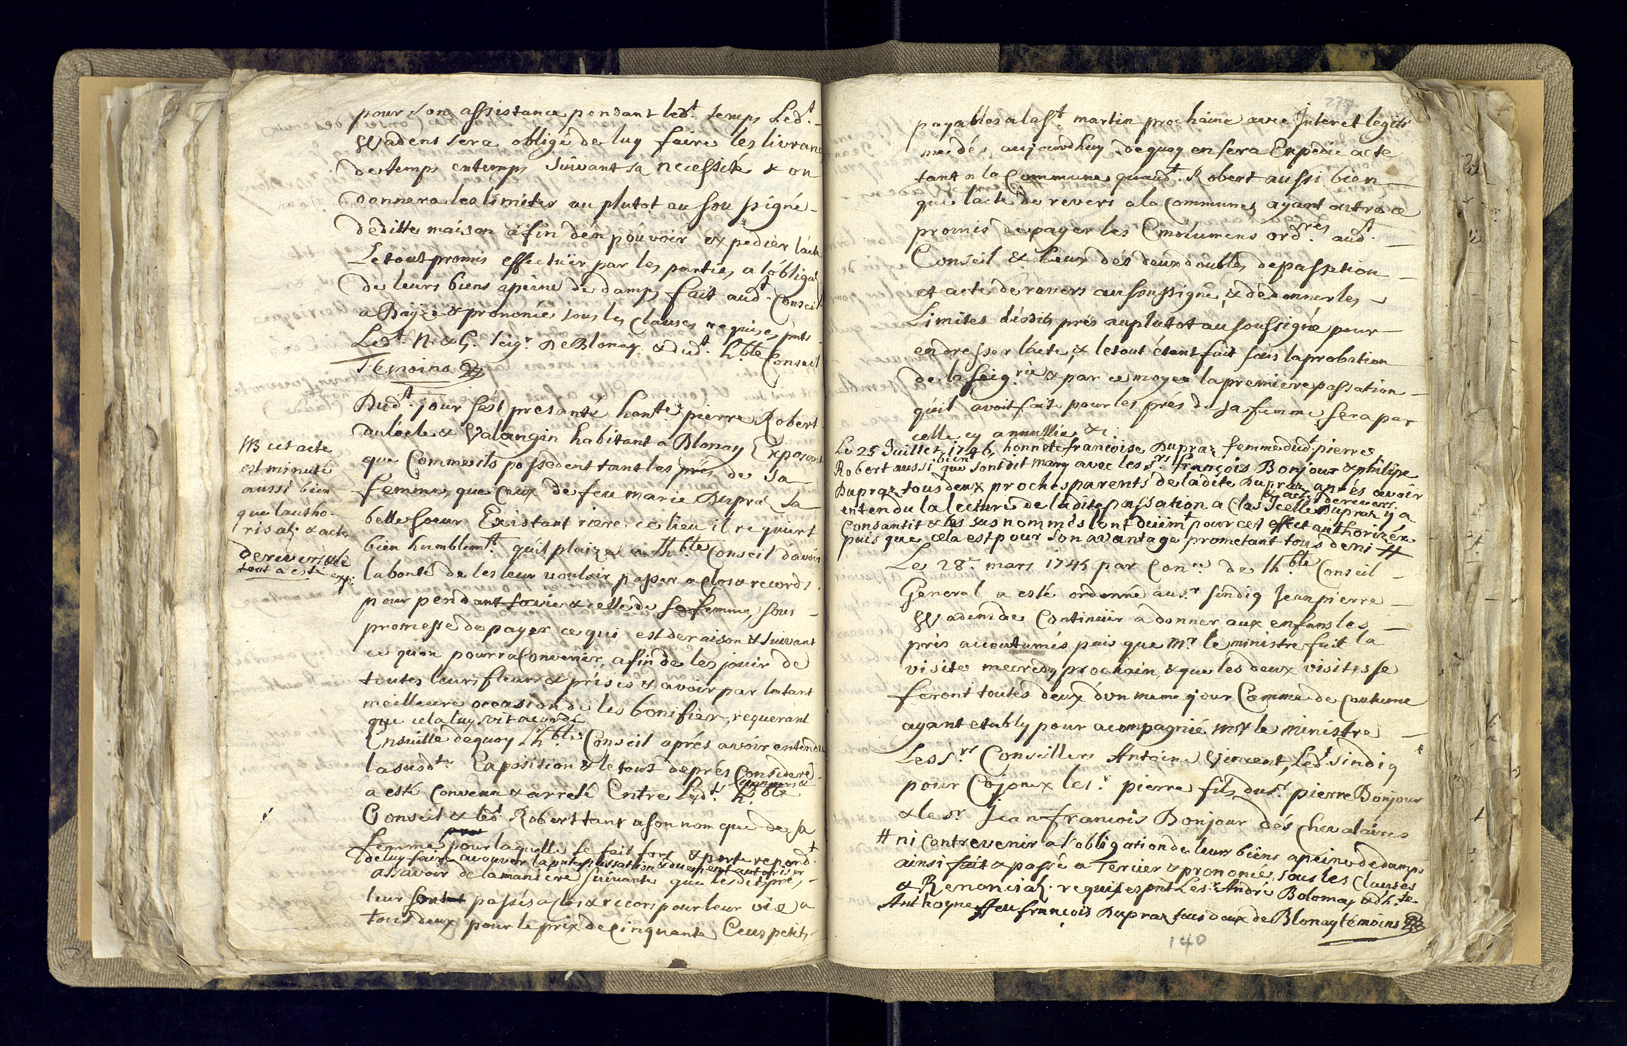 pour son assistance pendant led.t temps Led.t
Wadens sera obligé de luy faire les livran
de temps entemps suivant sa necessité & on
donnera les limites au plutot au sousigné
deditte maison afin d'en pouvoir expedier l'acte
Le tout promis effectuër par les parties a l'obliga
de leurs biens apeine de damps fait aud.t Conseil
a & prononcé sous les Clauses requises pnts
Led.t N. & G. Seig.r De Blonay & dud.t h.ble Conseil
Temoins
Dud.t jour s'est presenté hon.te pierre Robert
du locle & Valangin habitant a Blonay Exposant
que Comme ils possedent tant les prés de sa
femme, que Ceux de feu marie Dupra sa
belle soeur Existant riere ce lieu il requiert
bien humblem.t qu'il plaize a Lh.ble Conseil d'avoir
la bonté de les leur vouloir passer a Clos & records
pour pendant sa vie & celle de sa femme, sous
promesse de payer ce qui est de raison & suivant
ce qu'on pourra Convenir, afin de les jouir de
toutes leurs fleurs & prises & avoir par la tant
meilleure occasion de les bonifier, requerant
que cela luy soit acordé
Ensuitte dequoy Lh.ble Conseil aprés avoir entendu
la susd.te Exposition & le tout de prés Consideré
a esté Convenu & arresté Entre Led.t h.ble
Conseil & led.t Robert tant a son nom que de sa
femme pour laquelle se fait fort & porte respond.t
de luy faire avouer la pnte passation & duement autoriser
assavoir de la maniere suivante que lesdits prés,
leur sont passés a clos & recors pour leur vie a
tous deux pour le prix de Cinquante Ecus petits
NB cet acte
est minuté
aussi bien
que l'autho-
risat: & acte
de revers, le
tout a esté exp:
payables a la St martin prochaine avec Interet legiti
me dés aujourdhuy dequoy en sera Expedié acte
tant a la Commune quaud.t Robert aussi bien
que lacte de revers a la Commune, ayant outre ce
promis de payer les Emolumens ord.res aud.t
Conseil & Ceux des deux doubles de passation
et acte de revers au soussigné, & de donner les
Limites desdits prés au plutot au soussigné pour
en dresser l'acte, & le tout étant fait sous laprobation
de la seig.rie & par ce moyen la premiere passation
qu'il avoit fait pour les prés de sa femme sera par
celle cy annullée &c
Le 25 Juillet 1746, honnete francoise Dupraz femme dud.t pierre
Robert aussi bien que sondit mary avec les s.rs françois Bonjour & philipe
Dupraz tous deux proches parents de la dite Dupraz aprés avoir
entendu la lecture de la dite passation a Clos & acte de revers Icelle Dupraz y a
Consantit & les susnommés l'ont düem.t pour cet effet authorizée
puis que cela est pour son avantage prometant tous de ni #
Le 28.e mars 1745 par Con.n de Lh.ble Conseil
General a esté ordonné au s.r sindiq Jean pierre
Wadens de Continuër a donner aux enfans les
prés acoutumés puis que M.r le ministre fait la
visite mecredy prochain, & que les deux visites se
feront toutes deux d'un meme jour Comme de Coutume
ayant etably pour acompagnié M.r le ministre
Les S.rs Conseillers Antoine Vincent, Led.t sindiq
pour Cojonx le s.r pierre fils du s.r pierre Bonjour
& le s.r Jean francois Bonjour dés Chevalaires
# ni Contrevenir a l'obligation de leurs biens apeine de damps
ainsi fait & passé a Tercier & prononcé, sous les Clauses
& Renonciaõ: requises pnt Les s.r André Bolomay & d h.te
Anthoyne ffeu françois Dupraz tous deux de Blonay témoins
140